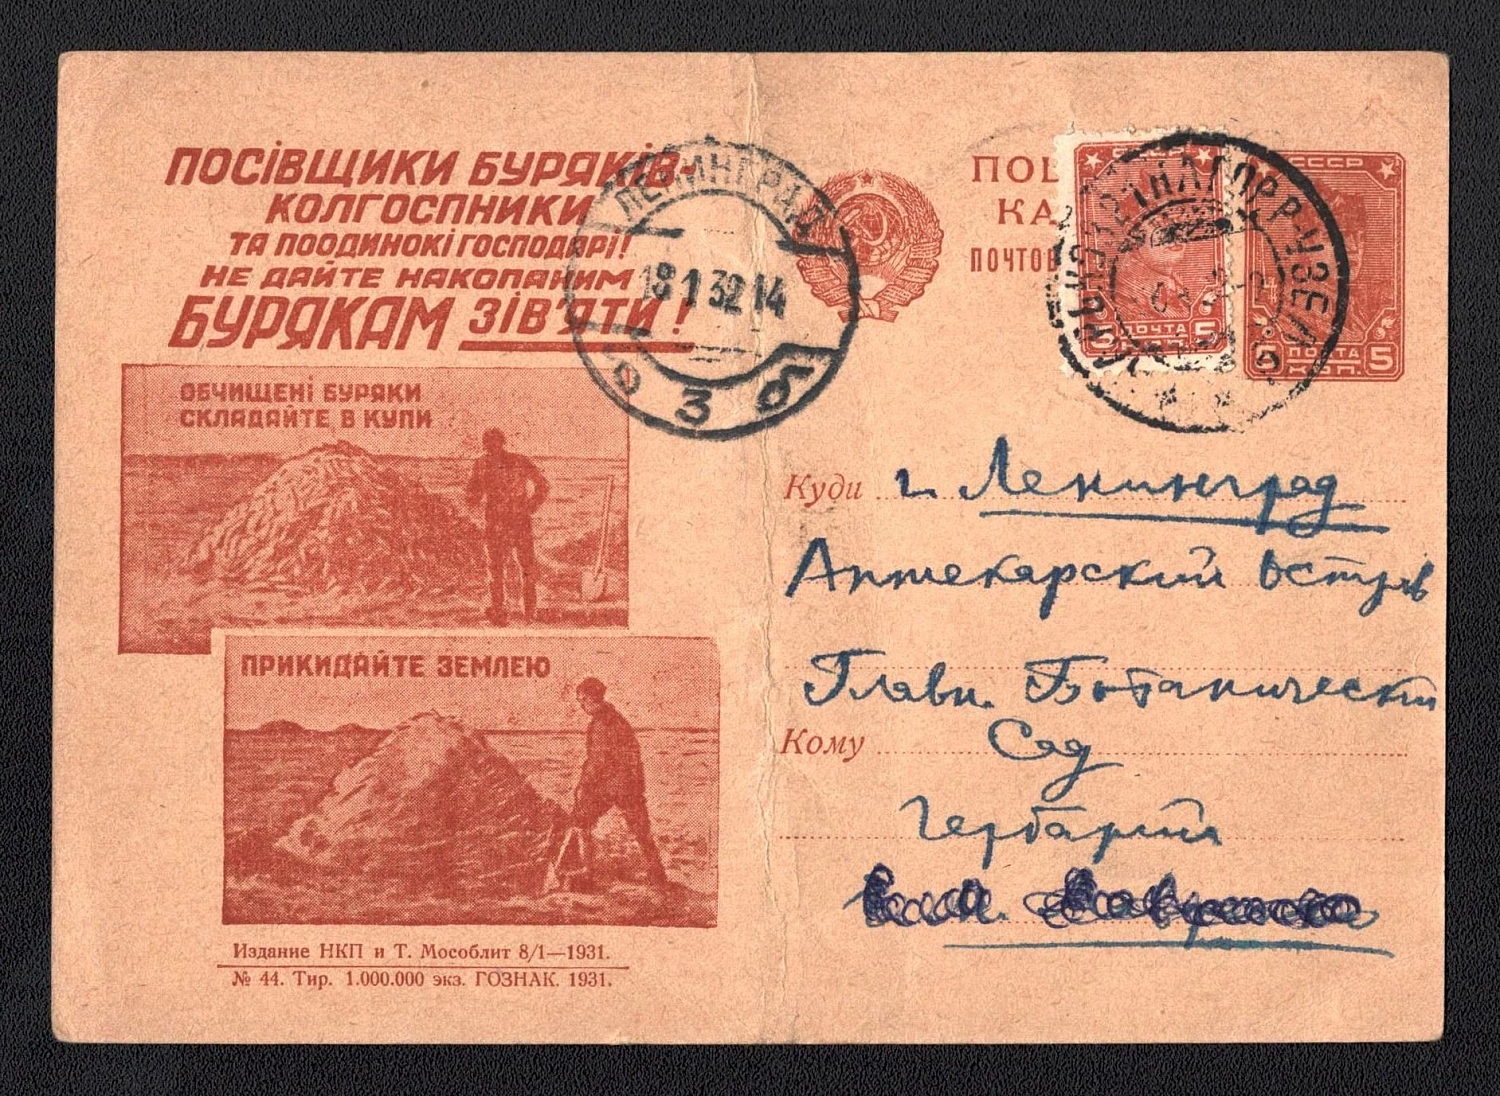 ПОСІВЩИКИ БУРЯКІВ-
КОЛГОСПНИКИ
ТА ПООДИНОКІ ГОСПОДАРІ!
НЕ ДАЙТЕ НАКОПАНИМ
БУРЯКАМ ЗІВ'ЯТИ!
ОБЧИЩЕНІ БУРЯКИ
СКЛАДАЙТЕ В КУПИ
ПРИКИДАЙТЕ ЗЕМЛЕЮ
Издание НКП и Т. Мособлит 8/1—1931.
№ 44. Тир. 1.000.000 экз. ГОЗНАК. 1931.
ЛЕНИНГРАД
18 1 32 14
СССР
ПОЧТА
5
СССР
5 ПОЧТА 5
КОП.
Куди г. Ленинград
Аптекарский Остров
Главн. Ботанический
Кому Сад
Гербарий